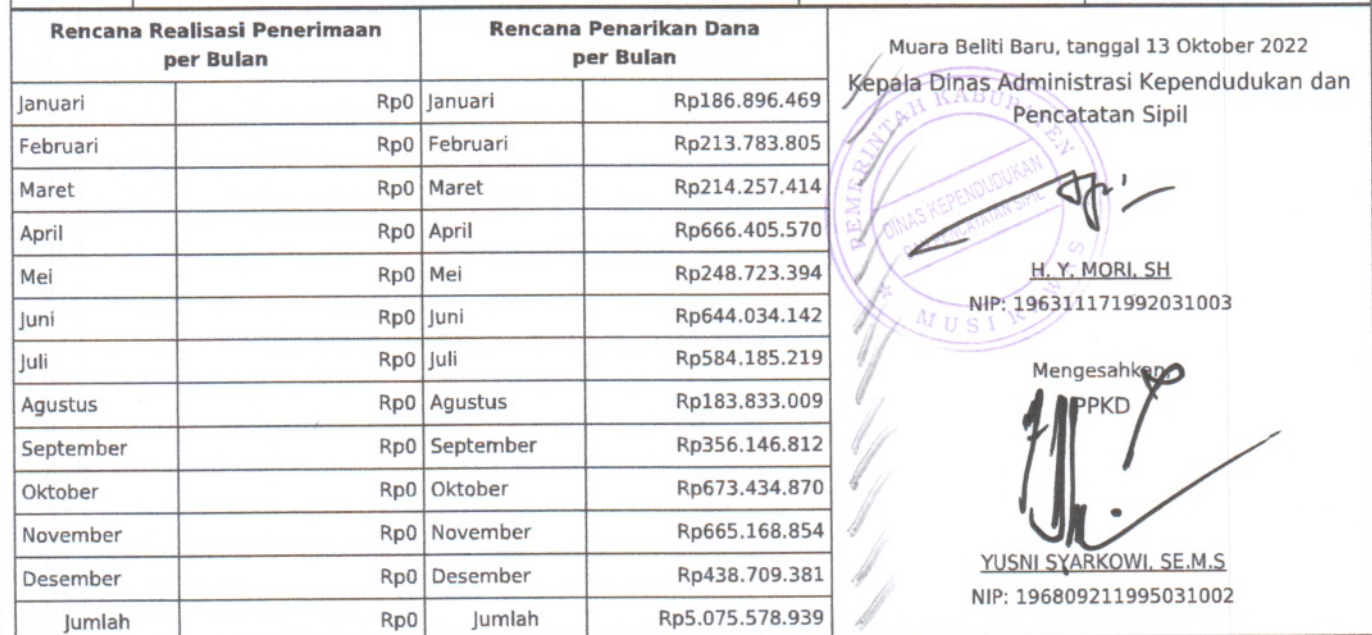 Rencana Realisasi Penerimaan per Bulan | Rencana Penarikan Dana per Bulan
Januari Rp0 Januari Rp186.896.469
Februari Rp0 Februari Rp213.783.805
Maret Rp0 Maret Rp214.257.414
April Rp0 April Rp666.405.570
Mei Rp0 Mei Rp248.723.394
Juni Rp0 Juni Rp644.034.142
Juli Rp0 Juli Rp584.185.219
Agustus Rp0 Agustus Rp183.833.009
September Rp0 September Rp356.146.812
Oktober Rp0 Oktober Rp673.434.870
November Rp0 November Rp665.168.854
Desember Rp0 Desember Rp438.709.381
Jumlah Rp0 Jumlah Rp5.075.578.939
Muara Beliti Baru, tanggal 13 Oktober 2022
Kepala Dinas Administrasi Kependudukan dan
Pencatatan Sipil
PEMERINTAH KABUPATEN
DINAS KEPENDUDUKAN
DAN PENCATATAN SIPIL
MUSI RAWAS
H. Y. MORI, SH
NIP: 196311171992031003
Mengesahkan,
PPKD
YUSNI SYARKOWI, SE.M.S
NIP: 196809211995031002